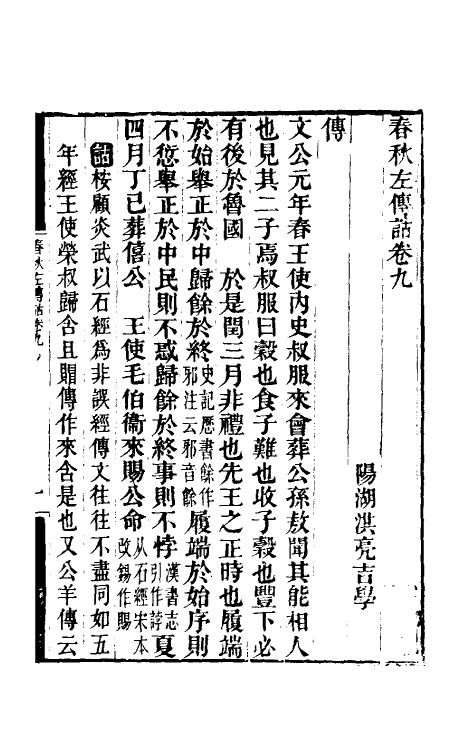 春秋左傳詁卷九
陽湖洪亮吉學
傳
文公元年春王使內史叔服來會葬公孫敖聞其能相人
也見其二子焉叔服曰穀也食子難也收子穀也豐下必
有後於魯國　於是閏三月非禮也先王之正時也履端
於始舉正於中歸餘於終史記厯書餘作邪注云邪音餘履端於始序則
不愆舉正於中民則不惑歸餘於終事則不悖漢書志引作誖夏
四月丁巳葬僖公　王使毛伯衞來賜公命从石經宋本改錫作賜
詁桉顧炎武以石經為非誤經傳文往往不盡同如五
年經王使榮叔歸含且賵傳作來含是也又公羊傳云
春秋左傳詁卷九
一